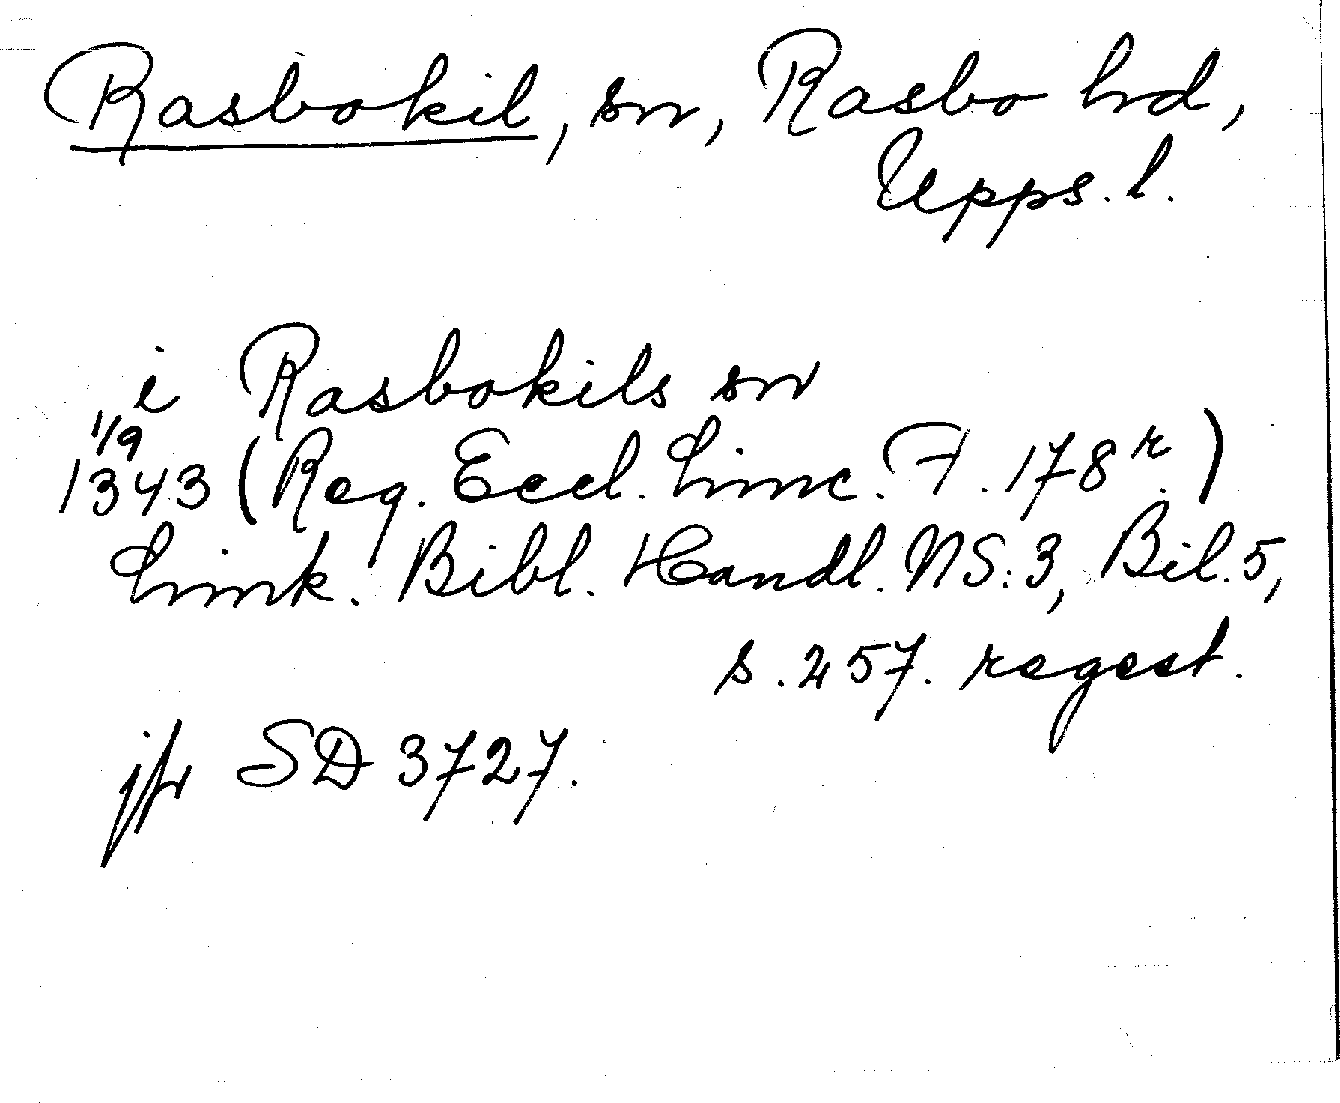 Rasbokil, sn, Rasbo hd,
Upps. l.
i Rasbokils sn
1/9
1343 (Reg. Eccl. Linc. F. 178r.)
Link. Bibl. Handl. NS:3, Bil. 5,
s. 257. regest.
jfr SD 3727.